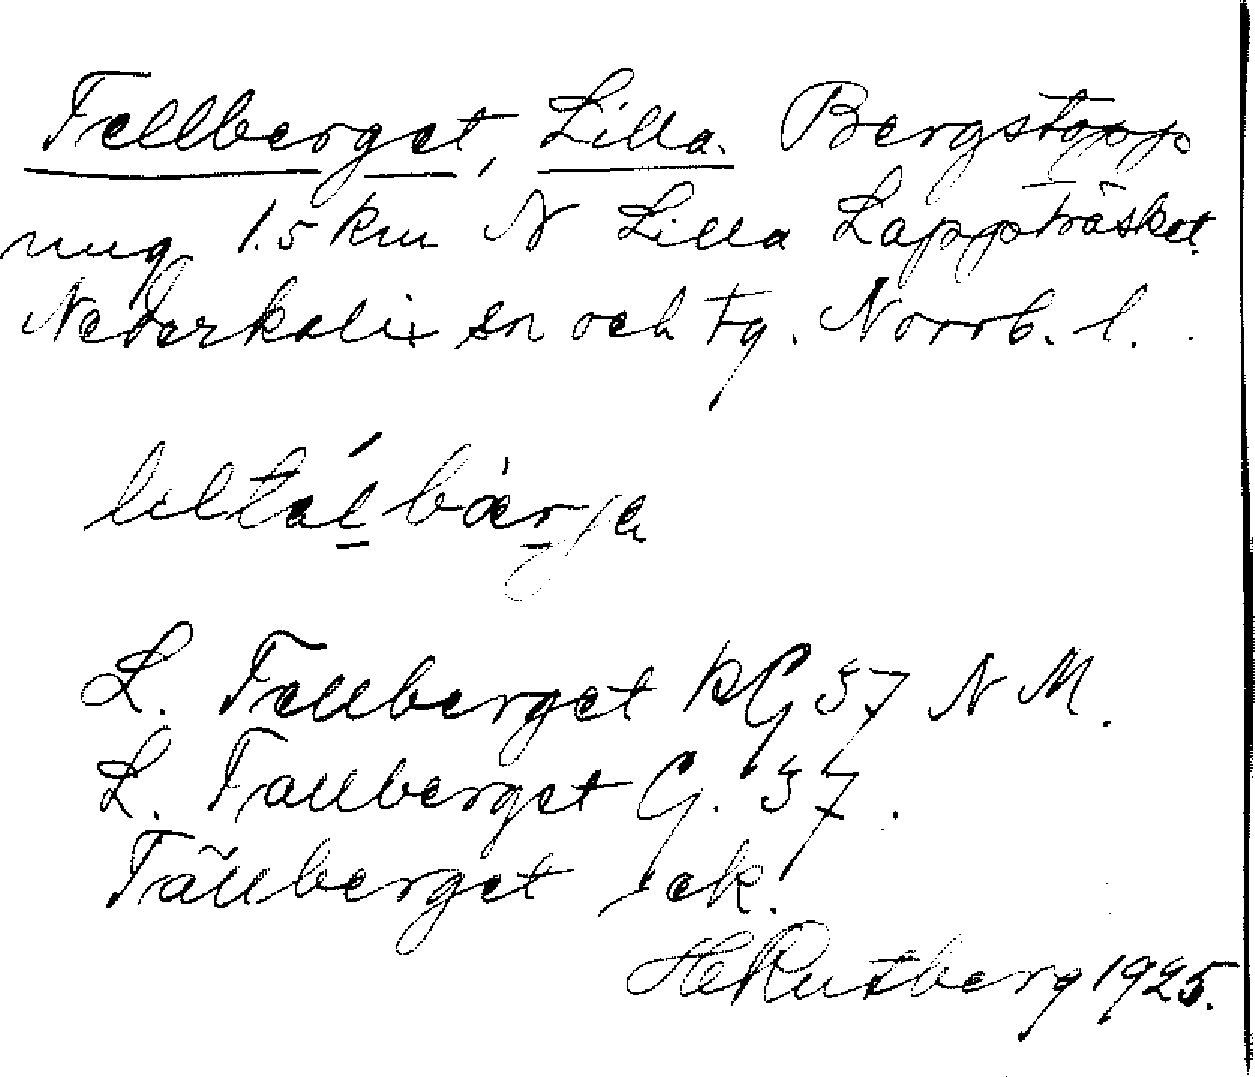 Fellberget, Lilla. Bergstopp
mug 1.5 km N Lilla Lappträsket.
Nederkalix sn och tg. Norrb. l.
L. Fellberget KG 57 N M.
L. Fallberget G. 57.
Fällberget ek.
H Rutberg 1925.